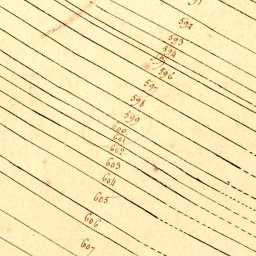 592
593
594
595
596
597
598
599
600
601
602
603
604
605
606
607